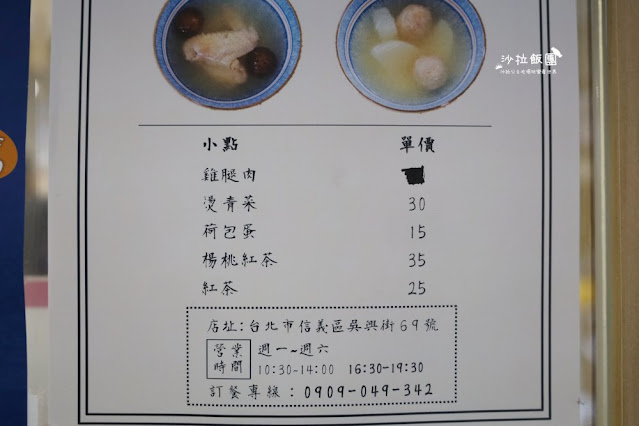 沙拉飯團
小點 單價
雞腿肉
燙青菜 30
荷包蛋 15
楊桃紅茶 35
紅茶 25
店址:台北市信義區吳興街69號
營業時間 週一~週六
10:30~14:00 16:30-19:30
訂餐專線:0909-049-342